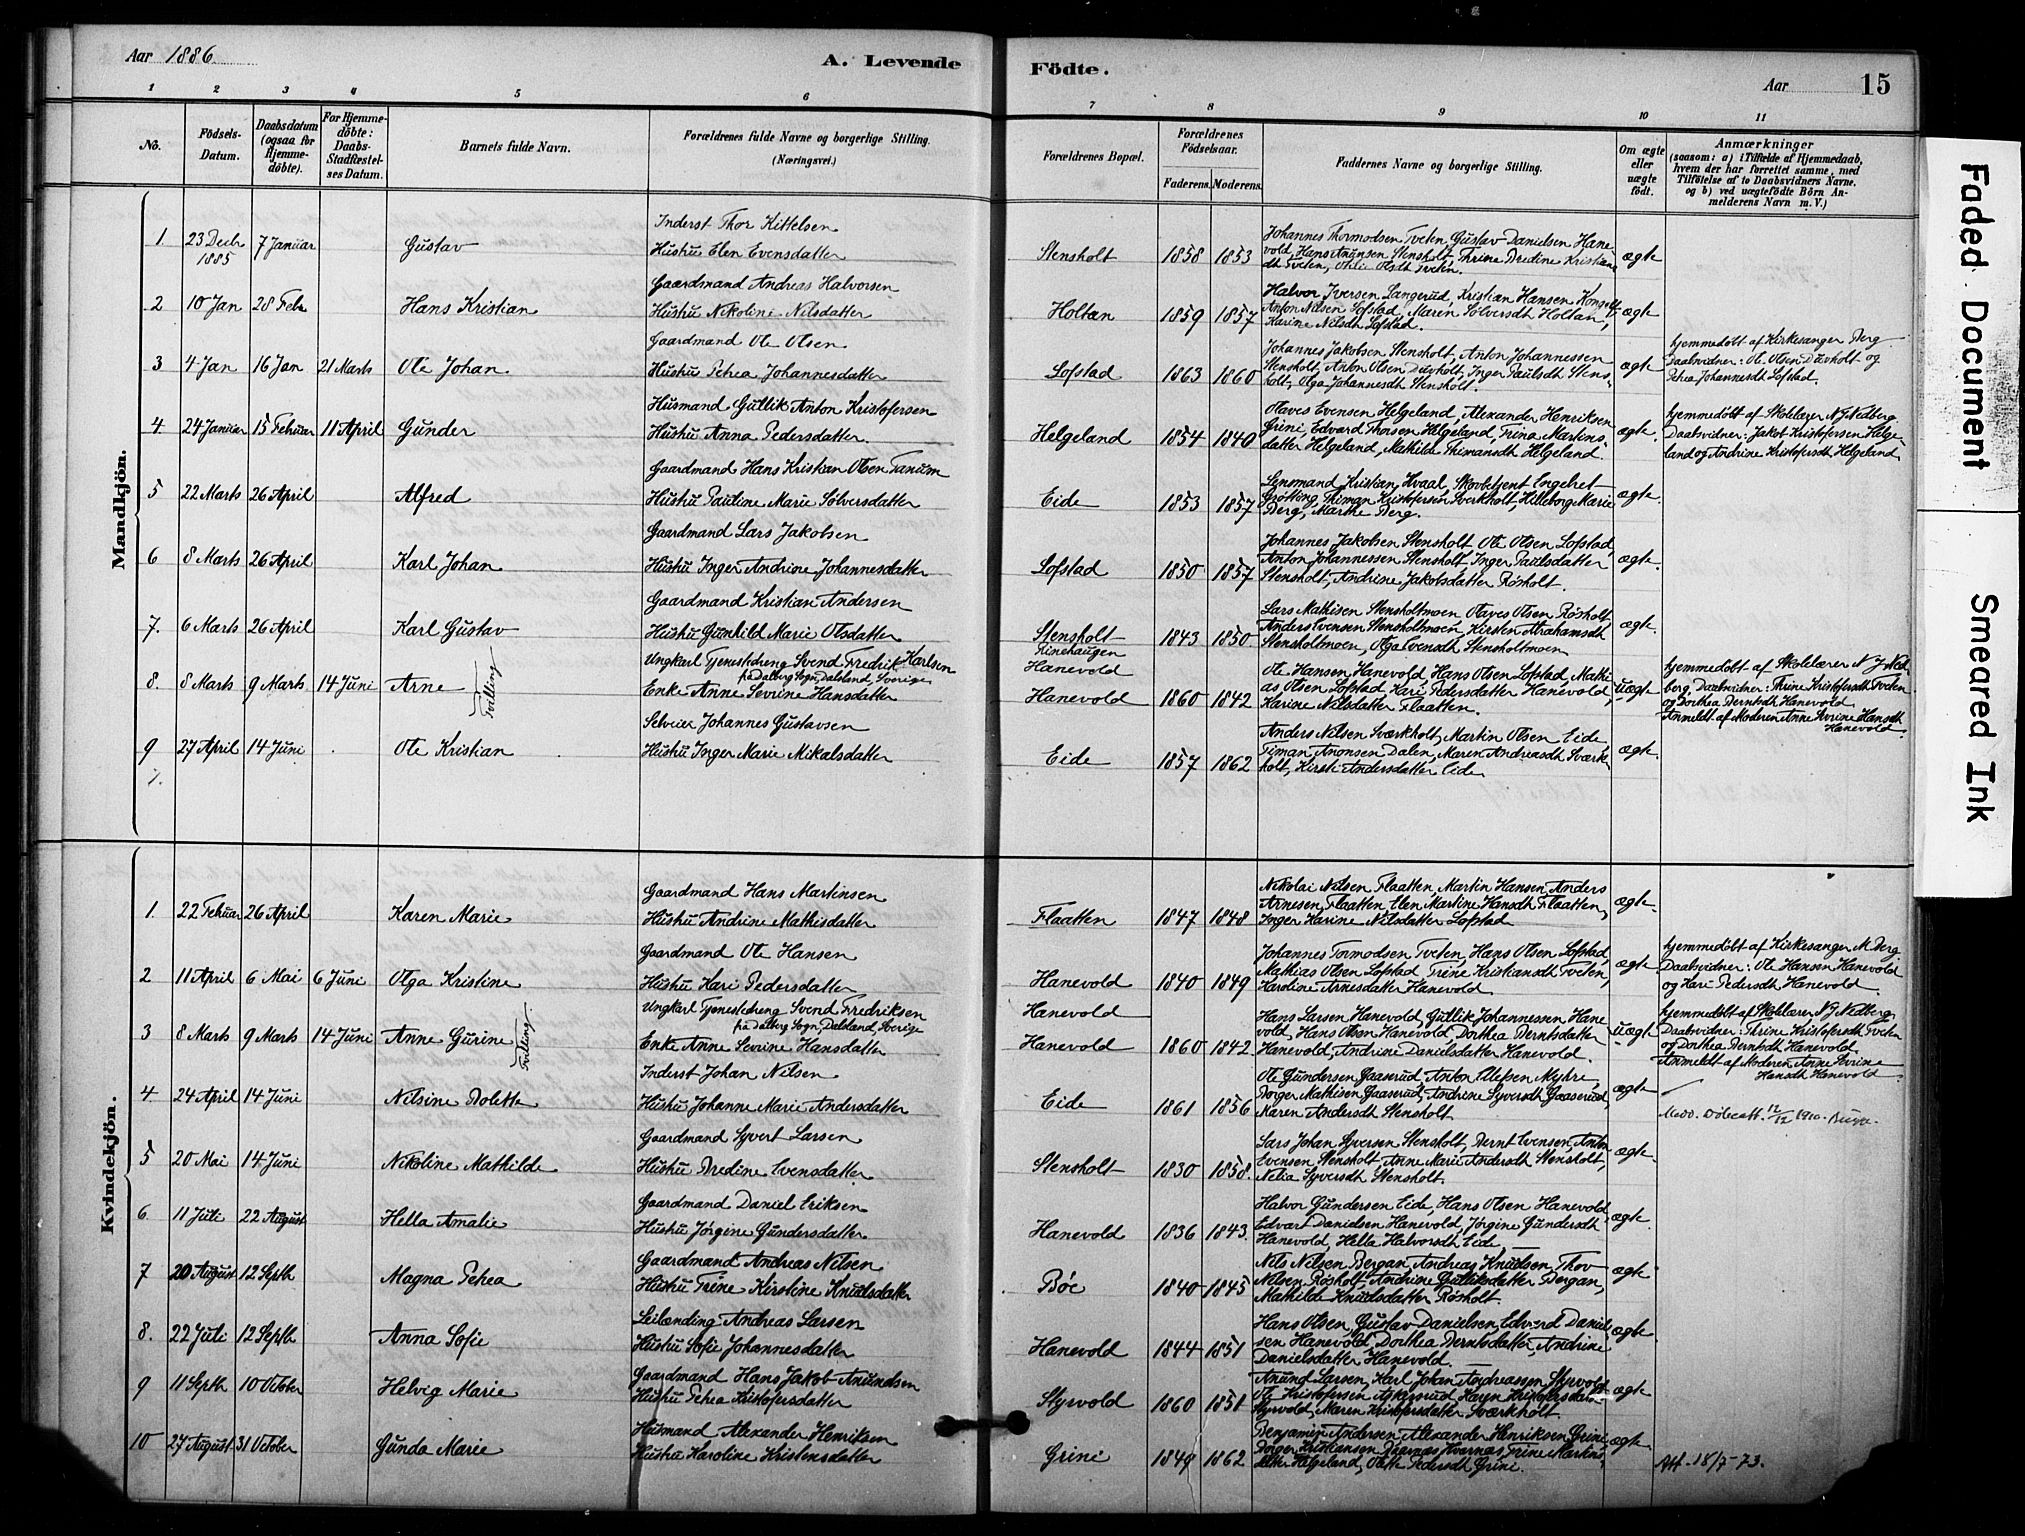 Aar 1886
A. Levende Födte.
Aar 15
1 2 3 4 5 6 7 8 9 10 11
No.
Födsels-Datum.
Daabsdatum (ogsaa for Hjemme-döbte).
For Hjemme-döbte: Daabs-Stadfæstel-ses Datum.
Barnets fulde Navn.
Forældrenes fulde Navne og borgerlige Stilling. (Næringsvei.)
Forældrenes Bopæl.
Forældrenes Födselsaar.
Faderens. Moderens.
Faddernes Navne og borgerlige Stilling.
Om ægte eller uægte födt.
Anmærkninger
(saasom: a) i Tilfælde af Hjemmedaab,
hvem der har forrettet samme, med
Tilföielse af to Daabsvidners Navne.
og b) ved uægtefödte Börn An-
melderens Navn m. V.)
Mandkjön.
1 23 Decbr 1885 7 Januar Gustav
Inderst Thor Kittelsen
Hustru Elen Evensdatter
Stensholt 1858 1853
Johannes Thormodsen Tveten, Gustav Danielsen Hane-
vold, Hans Anunsen Stensholt, Thrine Bredine Kristians-
dt Tveten, Olsdt Tveten.
ægte
2 10 Jan 28 Febr Hans Kristian
Gaardmand Andreas Halvorsen
Hustru Nikoline Nilsdatter
Holtan 1859 1857
Halvor Iversen Langerud, Kristian Hansen
Anton Nilsen Lofstad, Maren Sölversdt Holtan,
Karine Nilsdt Lofstad.
ægte
3 4 Jan 16 Jan 21 Marts Ole Johan
Gaardmand Ole Olsen
Hustru Petrea Johannesdatter
Lofstad 1863 1860
Johannes Jakobsen Stensholt, Anton Johannessen
Stensholt, Anton Olsen Durholt, Inger Paulsdt Stens-
holt, Olga Johannesdt Stensholt.
ægte
hjemmedöbt af Kirkesanger Berg
Daabsvidner: Ole Olsen Durholt og
Petrea Johannesdt Lofstad.
4. 24 Januar 15 Februar 11 April Gunder
Husmand Gullik Anton Kristofersen
Hustru Anna Pedersdatter.
Helgeland 1854 1840
Olaves Evensen Helgeland, Alexander Henriksen
Grini, Edvard Thorsen Helgeland, Trina Martins-
datter Helgeland, Mathilde Thimansdt Helgeland.
ægte.
hjemmedöbt af Skolelærer N J Nedberg
Daabsvidner: Jakob Kristofersen Helge-
land og Andrine Kristofersdt Helgeland.
5 22 Marts 26 April Alfred
Gaardmand Hans Kristian Olsen Tanum
Hustru Pauline Marie Sölversdatter
Eide 1853 1857
Lensmand Kristian Hvaal, Skovbetjent Engebret
Grötting, Thiman Kristofersen Sverkholt, Hilleborg Marie
Berg, Marthe Berg.
ægte.
6 8 Marts 26 April Karl Johan
Gaardmand Lars Jakobsen
Hustru Inger Andrine Johannesdatter
Lofstad 1850 1857
Johannes Jakobsen Stensholt, Ole Olsen Lofstad,
Anton Johannessen Stensholt, Inger Paulsdatter
Stensholt, Andrine Jakobsdatter Rösholt.
ægte.
7. 6 Marts 26 April Karl Gustav
Gaardmand Kristian Andersen
Hustru Gunhild Marie Olsdatter
Stensholt 1843 1850
Lars Mathisen Stensholtmoen, Olaves Olsen Rösholt,
Anders Evensen Stensholtmoen, Kirsten Abrahamsdt
Stensholtmoen, Olga Evensdt Stensholtmoen.
ægte.
8. 8 Marts 9 Marts 14 Juni Arne Tvilling
Ungkarl Tjenestedreng Svend Fredrik Karlsen
fra Dalberg Sogn, Dalsland, Sverige
Enke Anne Sevrine Hansdatter
Rinehaugen
Hanevold
Hanevold 1860 1842
Ole Hansen Hanevold, Hans Olsen Lofstad, Mathi-
as Olsen Lofstad, Kari Pedersdatter Hanevold,
Karine Nilsdatter Flaatten.
uægte
hjemmedöbt af Skolelærer N J Ned-
berg, Daabsvidner: Thrine Kristofersdt Tveten
og Dorthea Berntsdt Hanevold.
Anmeldt af Moderen Anne Sevrine Hansdt
Hanevold
9 27 April 14 Juni Ole Kristian
Selveier Johannes Gustavsen
Hustru Inger Marie Mikalsdatter
Eide 1857 1862
Anders Nilsen Sværkholt, Martin Olsen Eide
Timan Anonsen Dalen, Maren Andreasdt Sværk-
holt, Kirsti Andersdatter Eide
ægte.
Kvindekjön.
1. 22 Februar 26 April Karen Marie
Gaardmand Hans Martinsen
Hustru Andrine Mathisdatter
Flaatten 1847 1848
Nikolai Nilsen Flaatten, Martin Hansen, Anders
Arnesen Flaatten, Elen Martine Hansdt Flaatten,
Inger Karine Nilsdatter Lofstad
ægte.
2 11 April 6 Mai 6 Juni Olga Kristine
Gaardmand Ole Hansen
Hustru Kari Pedersdatter
Hanevold 1840 1849
Johannes Tormodsen Tveten, Hans Olsen Lofstad,
Mathias Olsen Lofstad, Trine Kristiansdt Tveten,
Karoline Arnesdatter Hanevold.
ægte
hjemmedöbt af Kirkesanger M Berg
Daabsvidner: Ole Hansen Hanevold
og Kari Pedersdt Hanevold.
3 8 Marts 9 Marts 14 Juni Anne Gurine Tvilling
Ungkarl Tjenestedreng Svend Fredriksen
fra Dalberg Sogn, Dalsland, Sverige
Enke Anne Sevrine Hansdatter
Hanevold
Hanevold 1860 1842
Hans Larsen Hanevold, Gullik Johannessen Hane-
vold, Hans Olsen Hanevold, Dorthea Berntsdatter
Hanevold, Andrine Danielsdatter Hanevold.
uægte
hjemmedöbt af Skolelærer N J Nedberg
Daabsvidner: Thrine Kristofersdt Tveten
og Dorthea Berntsdt Hanevold.
Anmeldt af Moderen Anne Sevrine
Hansdt Hanevold
4 24 April 14 Juni Nilsine Bolette
Inderst Johan Nilsen
Hustru Johanne Marie Andersdatter
Eide 1861 1856
Ole Gundersen Gaaserud, Anton Ellefsen Myhre,
Borger Mathisen Gaaserud, Andrine Syversdt Gaaserud,
Karen Andersdt Stensholt.
ægte
Medd. döbeatt. 12/12 1910.
5 20 Mai 14 Juni Nikoline Mathilde
Gaardmand Syvert Larsen
Hustru Bredine Evensdatter
Stensholt 1830 1858.
Lars Johan Syversen Stensholt, Bernt Evensen, Anton
Evensen Stensholt, Anne Marie Andersdt Stensholt,
Nelia Syversdt Stensholt.
ægte.
6. 11 Juli 22 August Hella Amalie
Gaardmand Daniel Eriksen
Hustru Jörgine Gundersdatter
Hanevold 1836 1843.
Halvor Gundersen Eide, Hans Olsen Hanevold,
Edvart Danielsen Hanevold, Jörgine Gundersdt
Hanevold, Hella Halvorsdt Eide
ægte.
7 20 August 12 Septb Magna Petrea
Gaardmand Andreas Nilsen
Hustru Trine Kirstine Knudsdatter
Böe 1840 1845
Nils Nilsen Bergan, Andreas Knudsen, Thov
Nilsen Rösholt, Andrine Gulliksdatter Bergan,
Mathilde Knudsdatter Rösholt.
ægte
8. 22 Juli 12 Septb Anna Sofie
Leilænding Andreas Larsen
Hustru Sofie Johannesdatter
Hanevold 1844 1851
Hans Olsen, Gustav Danielsen, Edvard Daniel-
sen Hanevold, Dorthea Berntsdatter, Andrine
Danielsdatter Hanevold.
ægte
9 11 Septb 10 October Helvig Marie
Gaardmand Hans Jakob Anundsen
Hustru Petrea Kristofersdatter
Styrvold 1860 1851
Anund Larsen, Karl Johan Andreassen Styrvold,
Ole Kristofersen Askjerud, Karen Kristofersdatter
Styrvold, Maren Kristofersdatter Sværkholt.
ægte
10 27 August 31 October Gunda Marie
Husmand Alexander Henriksen
Hustru Karoline Kristensdatter
Grini 1849 1862
Benjamin Andersen, Alexander Henriksen Grini
Borger Kristiansen Hvarnes, Trine Martins-
datter Helgeland, Olette Pedersdt Grini.
ægte.
Att. 18/7-73.
Faded Document
Smeared Ink